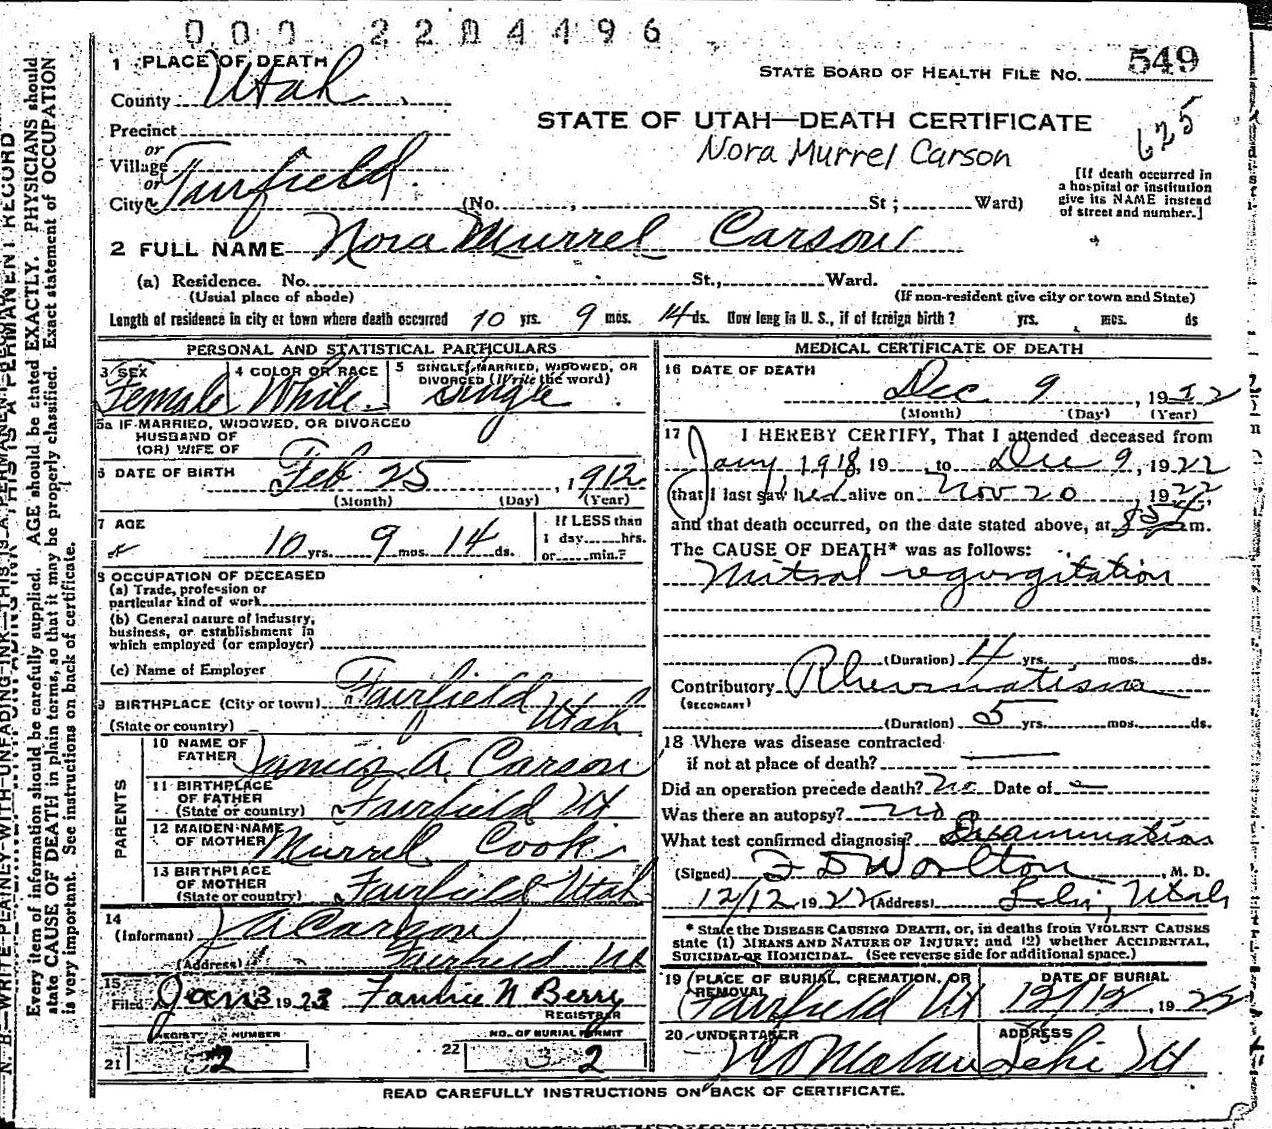 000 2204496
1 PLACE OF DEATH
STATE BOARD OF HEALTH FILE No. 549
County Utah
STATE OF UTAH—DEATH CERTIFICATE
625
Precinct
Nora Murrel Carson
or
Village
or
City Fairfield (No. , St ; Ward)
[If death occurred in
a hospital or institution
give its NAME instead
of street and number.]
2 FULL NAME Nora Murrel Carson
(a) Residence. No. St., Ward.
(Usual place of abode) (If non-resident give city or town and State)
Length of residence in city or town where death occurred 10 yrs. 9 mos. 14 ds. How long in U. S., if of foreign birth? yrs. mos. ds
PERSONAL AND STATISTICAL PARTICULARS
3 SEX 4 COLOR OR RACE 5 SINGLE, MARRIED, WIDOWED, OR
DIVORCED (Write the word)
Female White Single
5a IF MARRIED, WIDOWED, OR DIVORCED
HUSBAND OF
(OR) WIFE OF
6 DATE OF BIRTH Feb 25, 1912
(Month) (Day) (Year)
7 AGE
10 yrs. 9 mos. 14 ds.
If LESS than
1 day hrs.
or min.?
8 OCCUPATION OF DECEASED
(a) Trade, profession or
particular kind of work
(b) General nature of industry,
business, or establishment in
which employed (or employer)
(c) Name of Employer
9 BIRTHPLACE (City or town) Fairfield
(State or country) Utah
PARENTS
10 NAME OF
FATHER James A. Carson
11 BIRTHPLACE
OF FATHER
(State or country) Fairfield Ut
12 MAIDEN NAME
OF MOTHER Murrel Cook
13 BIRTHPLACE
OF MOTHER
(State or country) Fairfield Utah
14
(Informant) J A Carson
(Address) Fairfield Ut
15
Filed Jan 3 1923 Fannie N Berry
REGISTRAR
REGISTRY NUMBER NO. OF BURIAL PERMIT
21 2 22 2
MEDICAL CERTIFICATE OF DEATH
16 DATE OF DEATH
Dec 9, 1922
(Month) (Day) (Year)
17 I HEREBY CERTIFY, That I attended deceased from
Jany 1918, 19 , to Dec 9, 1922
that I last saw her alive on Nov 20, 1922,
and that death occurred, on the date stated above, at m.
The CAUSE OF DEATH* was as follows:
Mitral regurgitation
(Duration) 4 yrs. mos. ds.
Contributory Rheumatism
(SECONDARY)
(Duration) 5 yrs. mos. ds.
18 Where was disease contracted
if not at place of death?
Did an operation precede death? No Date of
Was there an autopsy? no
What test confirmed diagnosis? Examination
(Signed) , M. D.
12/12, 1922 (Address) Lehi, Utah
* State the DISEASE CAUSING DEATH, or, in deaths from VIOLENT CAUSES
state (1) MEANS AND NATURE OF INJURY; and (2) whether ACCIDENTAL,
SUICIDAL OR HOMICIDAL. (See reverse side for additional space.)
19 PLACE OF BURIAL, CREMATION, OR
REMOVAL DATE OF BURIAL
Fairfield Ut 12/12, 1922
20 UNDERTAKER ADDRESS
Lehi Ut
READ CAREFULLY INSTRUCTIONS ON BACK OF CERTIFICATE.
N. B.—WRITE PLAINLY WITH UNFADING INK—THIS IS A PERMANENT RECORD
Every item of information should be carefully supplied. AGE should be stated EXACTLY. PHYSICIANS should
state CAUSE OF DEATH in plain terms, so that it may be properly classified. Exact statement of OCCUPATION
is very important. See instructions on back of certificate.